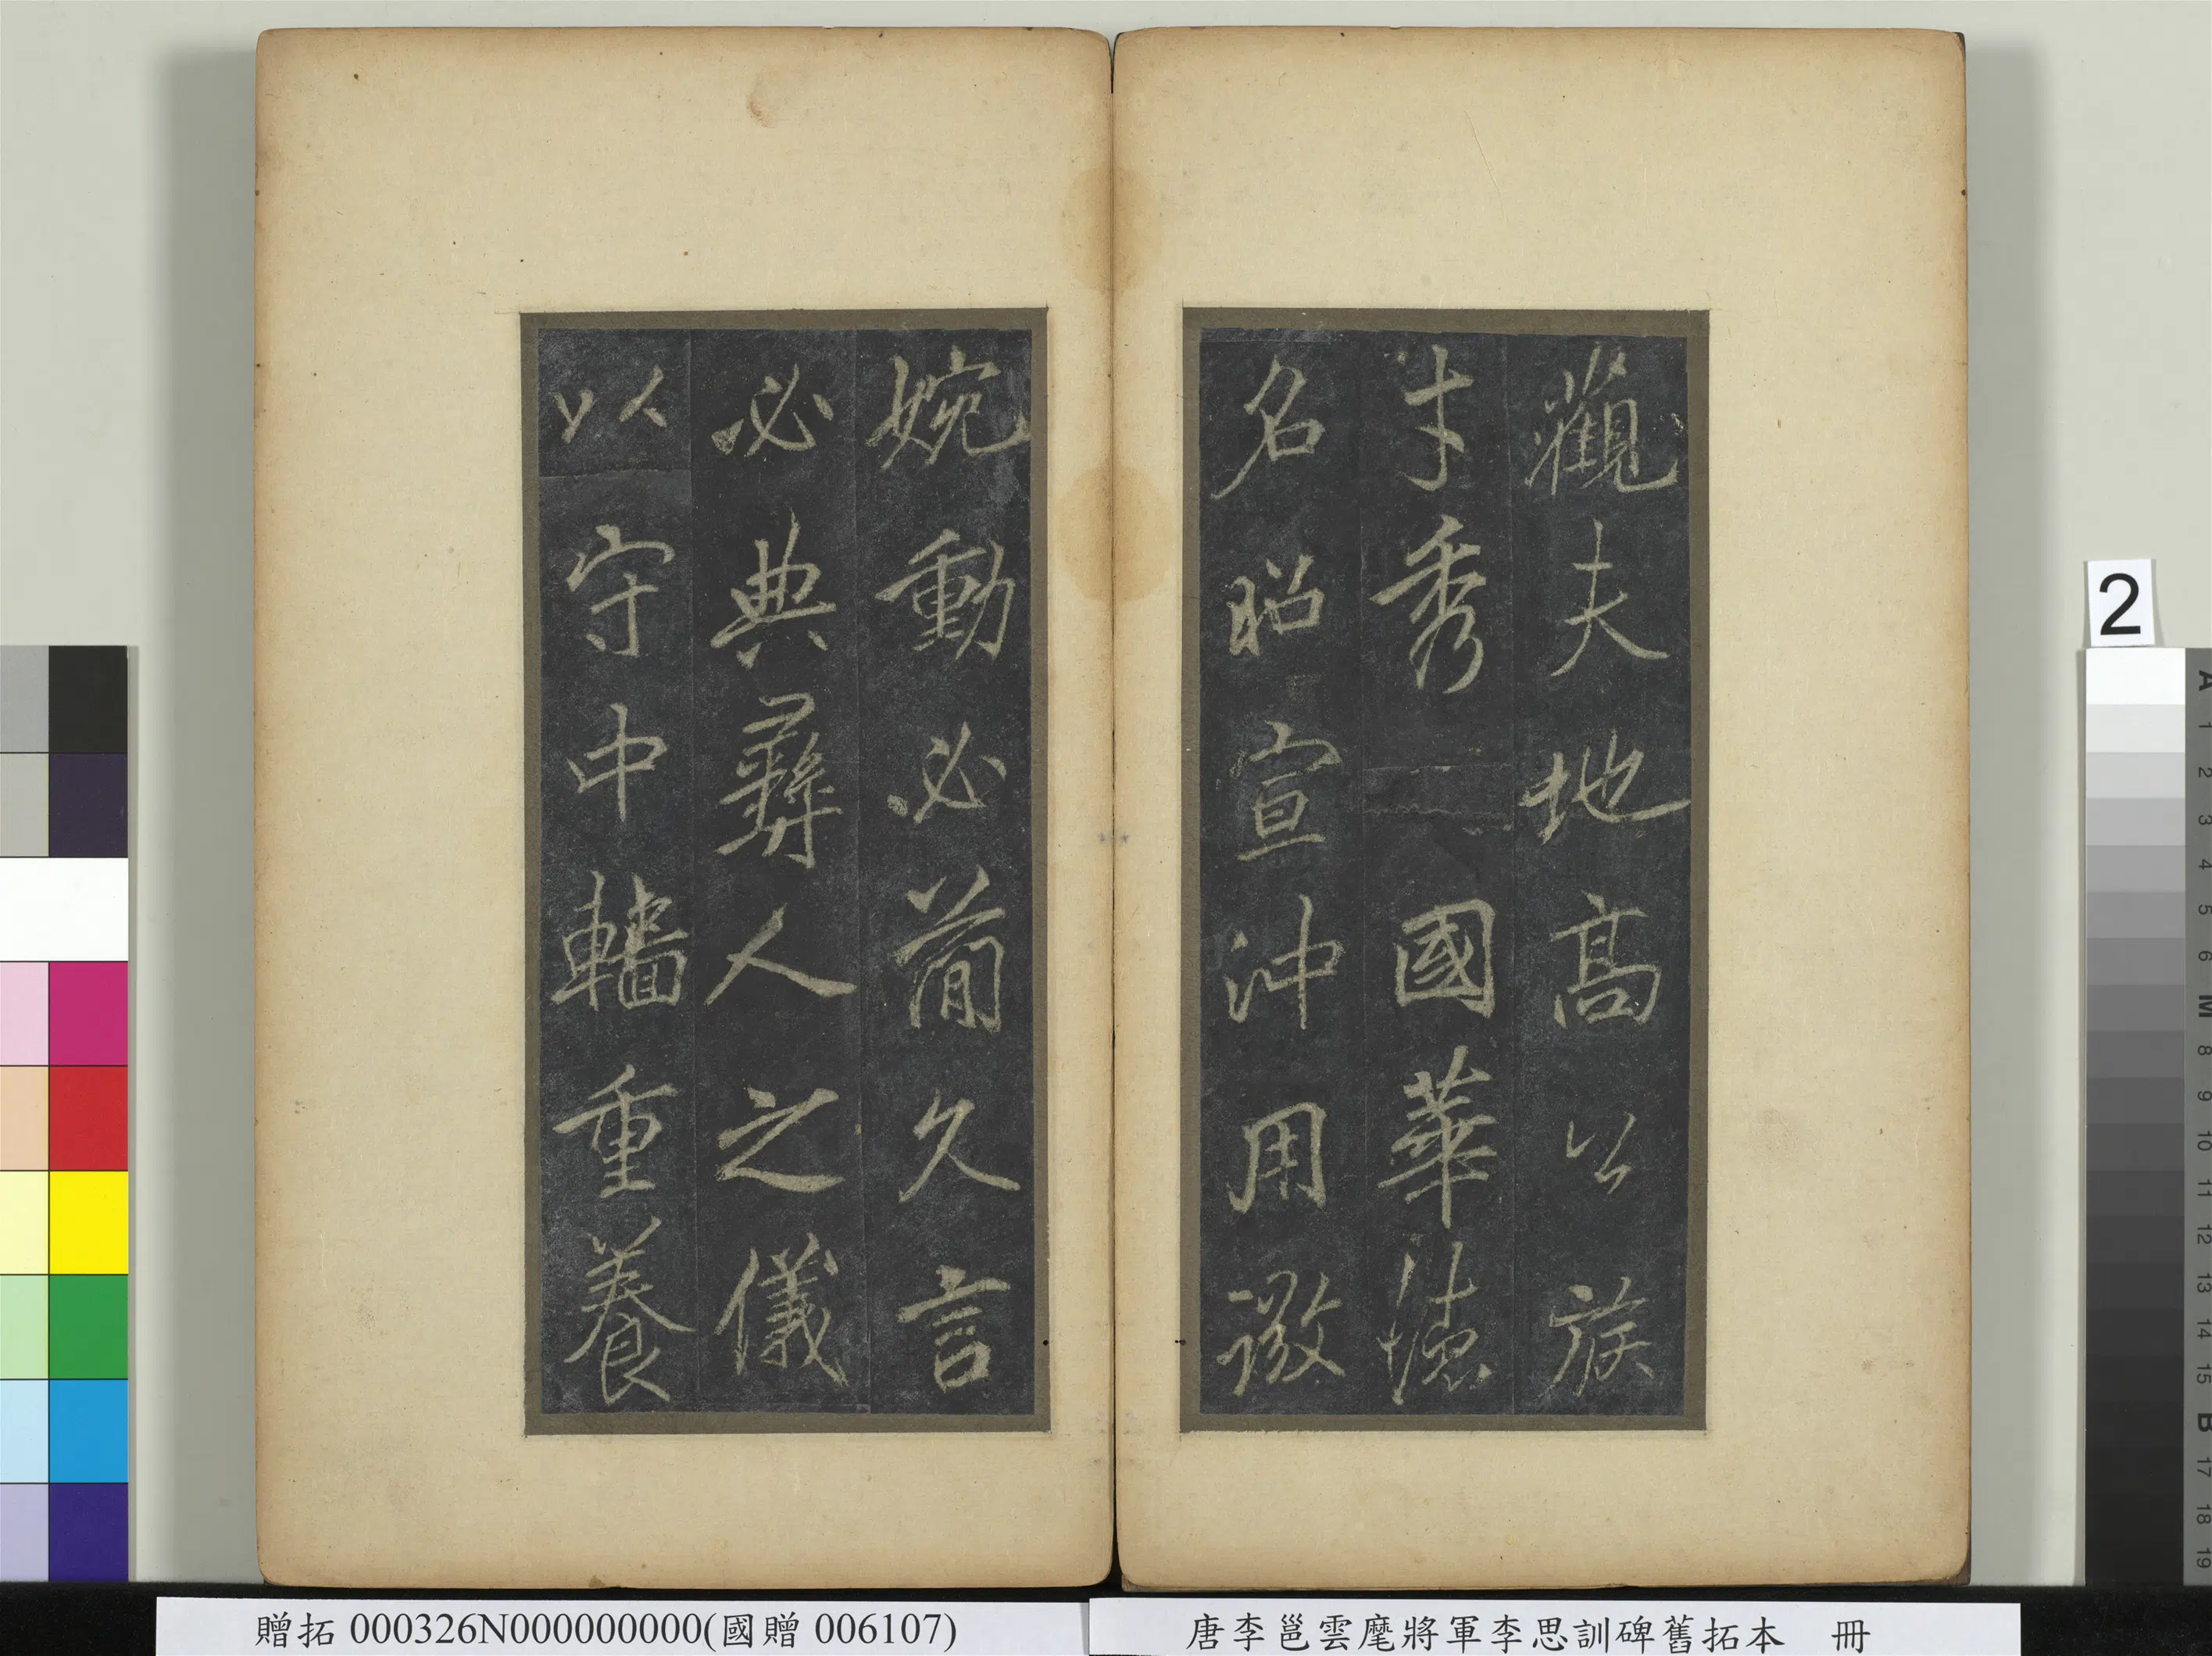 觀夫地高公族
才秀國華德
名昭宣沖用微
婉動必簡久言
必典彝人之儀
以守中輜重養
唐李邕雲麾將軍李思訓碑舊拓本 冊
贈拓 000326N000000000(國贈 006107)
2
A
1
2
3
4
5
6
M
8
9
10
11
12
13
14
15
B
17
18
19